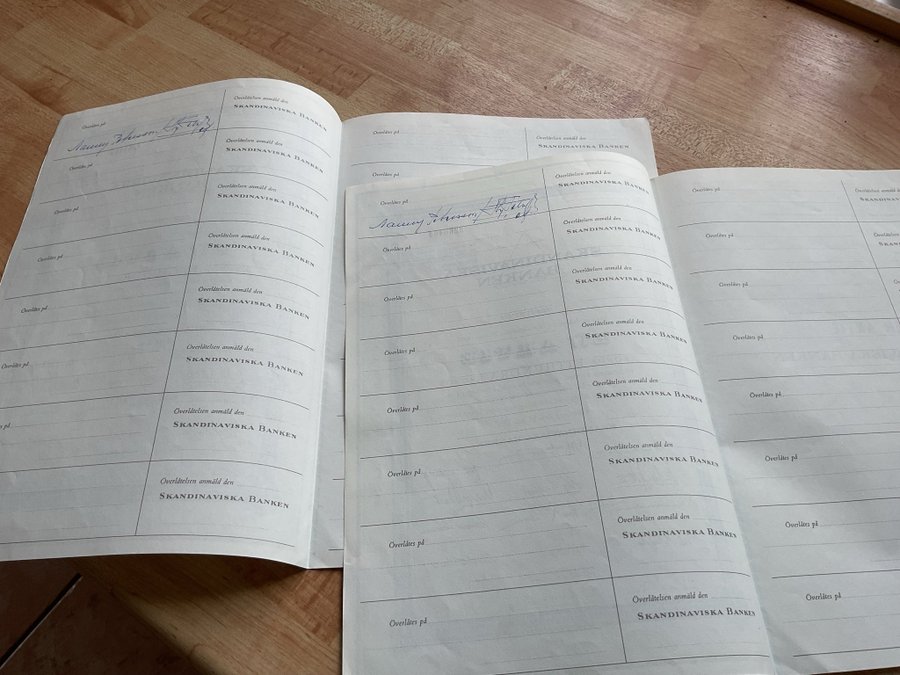 Överlåtes på
Överlåtelsen anmäld den
SKANDINAVISKA BANKEN
Överlåtes på
Överlåtelsen anmäld den
SKANDINAVISKA BANKEN
Överlåtes på
Överlåtelsen anmäld den
SKANDINAVISKA BANKEN
Överlåtes på
Överlåtelsen anmäld den
SKANDINAVISKA BANKEN
Överlåtes på
Överlåtelsen anmäld den
SKANDINAVISKA BANKEN
Överlåtes på
Överlåtelsen anmäld den
SKANDINAVISKA BANKEN
på
Överlåtelsen anmäld den
SKANDINAVISKA BANKEN
Överlåtelsen anmäld den
SKANDINAVISKA BANKEN
Överlåtes på
Överlåtelsen anmäld den
SKANDINAVISKA BANKEN
Överlåtes på
Överlåtes på
Överlåtelsen anmäld den
SKANDINAVISKA BANKEN
Överlåtes på
Överlåtelsen anmäld den
SKANDINAVISKA BANKEN
Överlåtes på
Överlåtelsen anmäld den
SKANDINAVISKA BANKEN
Överlåtes på
Överlåtelsen anmäld den
SKANDINAVISKA BANKEN
Överlåtes på
Överlåtelsen anmäld den
SKANDINAVISKA BANKEN
Överlåtes på
Överlåtelsen anmäld den
SKANDINAVISKA BANKEN
Överlåtes på
Överlåtelsen anmäld den
SKANDINAVISKA BANKEN
Överlåtes på
Överlåtelsen anmäld den
SKANDINAVISKA BANKEN
Överlåtes på
Överlåtes på
Överlåtes på
Överlåtes på
Överlåtes på
Överlåtes på
Överlåtes på
Överlåtes på